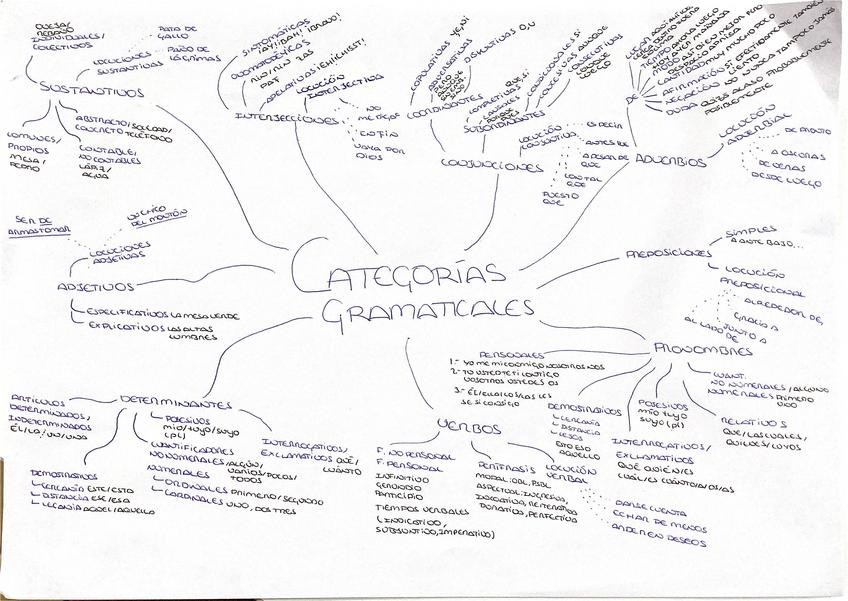 CATEGORÍAS
GRAMATICALES
SUSTANTIVOS
INDIVIDUALES/
COLECTIVOS
LOCUCIONES
SUSTANTIVAS
PATA DE
GALLO
PAÑO DE
LÁGRIMAS
COMUNES/
PROPIOS
MESA/
PEDRO
ABSTRACTO/SOLEDAD/
CONCRETO TELÉFONO
CONTABLE/
NO CONTABLES
LÁPIZ/
AGUA
INTERJECCIONES
SINTOMÁTICAS
¡AY! ¡BAH! ¡BRAVO!
ONOMATOPÉYICAS
APELATIVAS ¡EH! ¡CHIST!
LOCUCIÓN
INTERJECTIVA
NO
ME DIGAS
EN FIN
VAYA POR
DIOS
CONJUNCIONES
COORDINANTES
COPULATIVAS Y, E, NI
ADVERSATIVAS
DISYUNTIVAS O, U
SUBORDINANTES
COMPLETIVAS QUE, SI
CAUSALES
CONDICIONALES SI
CONCESIVAS AUNQUE
CONSECUTIVAS
CONQUE
LUEGO
LOCUCIÓN
CONJUNTIVA
ES DECIR
ANTES QUE
A PESAR DE
QUE
CON TAL
QUE
PUESTO
QUE
ADVERBIOS
DE
LUGAR AQUÍ AHÍ
TIEMPO AHORA LUEGO
MODO ASÍ BIEN MEJOR PEOR
CANTIDAD MUY MUCHO POCO
AFIRMACIÓN SÍ EFECTIVAMENTE TAMBIÉN
NEGACIÓN NO NUNCA TAMPOCO JAMÁS
DUDA QUIZÁ ACASO PROBABLEMENTE
POSIBLEMENTE
LOCUCIÓN
ADVERBIAL
DE PRONTO
A OSCURAS
DE VERAS
DESDE LUEGO
PREPOSICIONES
SIMPLES
A ANTE BAJO...
LOCUCIÓN
PREPOSICIONAL
ALREDEDOR DE,
GRACIA A
JUNTO A
AL LADO DE
ADJETIVOS
SER DE
ARMAS TOMAR
DEL MONTÓN
LOCUCIONES
ADJETIVAS
ESPECIFICATIVOS LA MESA VERDE
EXPLICATIVOS LAS ALTAS
CUMBRES
DETERMINANTES
ARTÍCULOS
DETERMINADOS/
INDETERMINADOS
ÉL/LA/UN/UNA
DEMOSTRATIVOS
CERCANÍA ESTE/ESTA
DISTANCIA ESE/ESA
LEJANÍA AQUEL/AQUELLA
POSESIVOS
MIO/TUYO/SUYO
(PL)
CUANTIFICADORES
NO NUMERALES ALGÚN/
VARIOS/POCOS/
TODOS
NUMERALES
ORDINALES PRIMERO/SEGUNDO
CARDINALES UNO, DOS TRES
INTERROGATIVOS/
EXCLAMATIVOS QUÉ/
CUÁNTO
VERBOS
F. NO PERSONAL
F. PERSONAL
INFINITIVO
GERUNDIO
PARTICIPIO
TIEMPOS VERBALES
(INDICATIVO,
SUBJUNTIVO, IMPERATIVO)
PERÍFRASIS
MODAL: OBL, PSBL
ASPECTUAL: INGRESIVA,
INCOATIVA, REITERATIVA
DURATIVA, PERFECTIVA
LOCUCIÓN
VERBAL
DARSE CUENTA
ECHAR DE MENOS
ARDER EN DESEOS
PRONOMBRES
PERSONALES
1.- YO ME MI CONMIGO NOSOTROS NOS
2.- TÚ USTED TE TI CONTIGO
VOSOTROS USTEDES OS
3.- ÉL/ELLA/LO/LAS LES
SE SÍ CONSIGO
DEMOSTRATIVOS
CERCANÍA
DISTANCIA
LEJOS
ESTO ESO
AQUELLO
POSESIVOS
MÍO TUYO
SUYO (PL)
INTERROGATIVOS/
EXCLAMATIVOS
QUÉ QUIÉN/ES
CUÁL/ES CUÁNTO/A/OS/AS
RELATIVOS
QUE/LAS CUALES/
QUIENES/CUYOS
CUANT.
NO NUMERALES/ALGUNO
NUMERALES PRIMERO
UNO